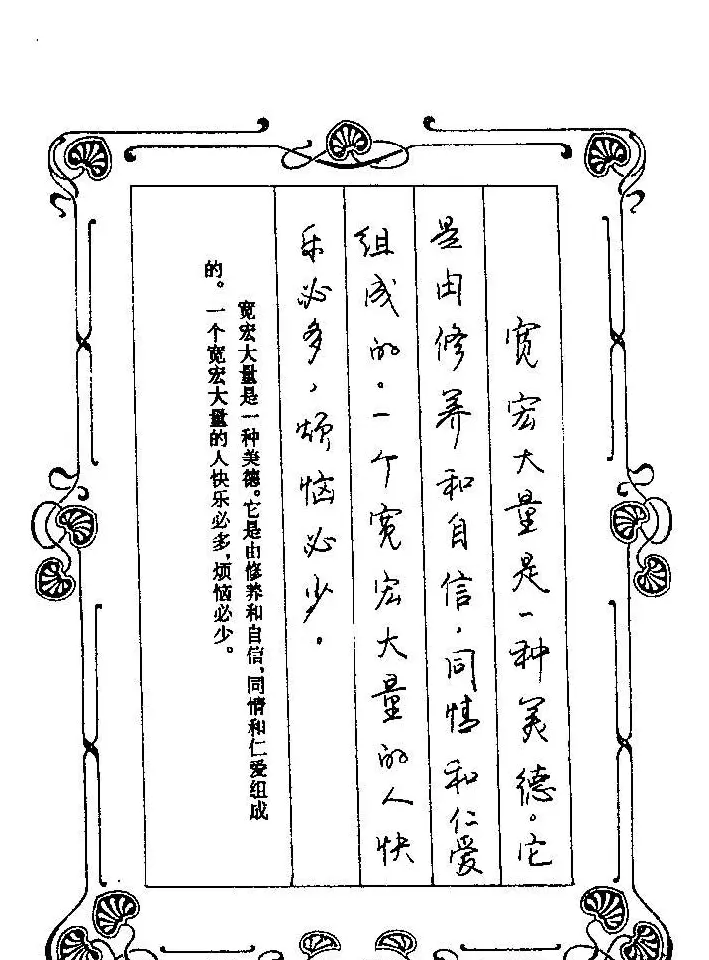 宽宏大量是一种美德。它
是由修养和自信,同情和仁爱
组成的。一个宽宏大量的人快
乐必多,烦恼必少。
宽宏大量是一种美德。它是由修养和自信、同情和仁爱组成
的。一个宽宏大量的人快乐必多,烦恼必少。